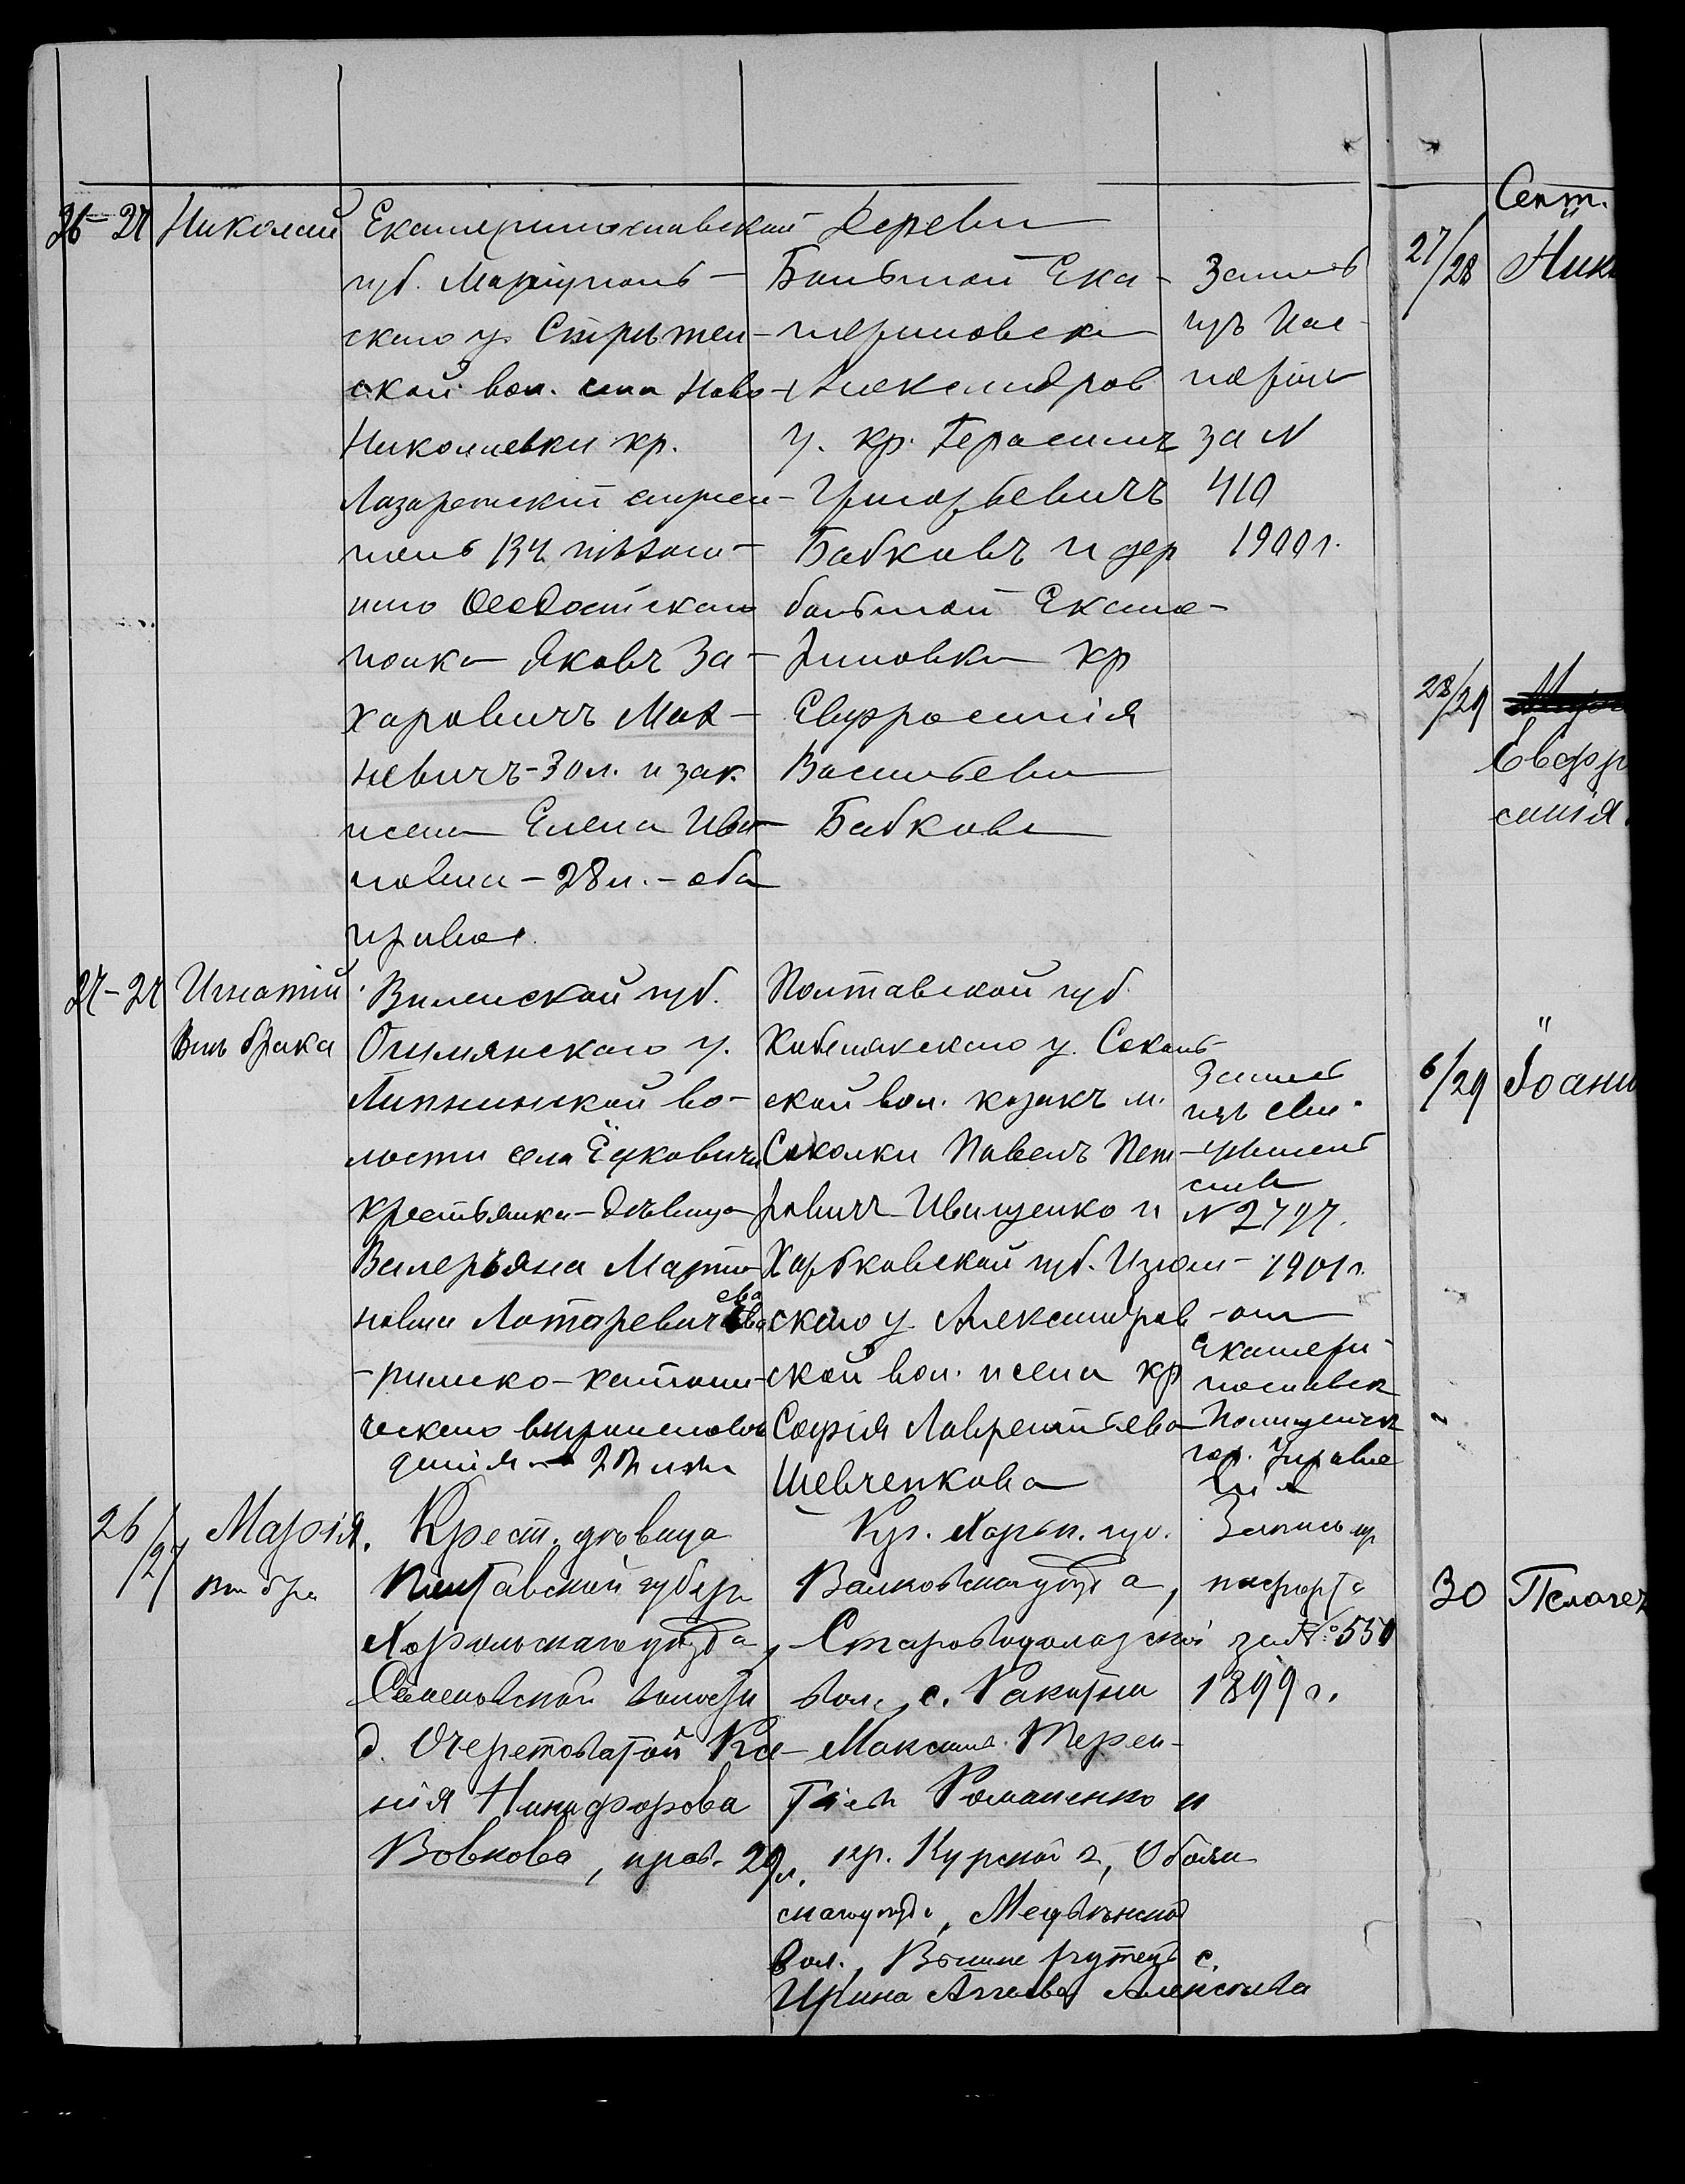 26-27
Николай
Екатеринославской
губ. Маріуполь-
скаго у. Стрытен-
ской вол. села Ново-
Николаевки кр.
Лазаретскій служи-
тель 134 пѣхот-
наго Ѳеодосійскаго
полка Яковъ За-
харовичъ Мах-
невичъ-30 л. и зак.
жена Елена Ива-
новна - 28 л. - оба
правос.
Деревни
Большой Ека-
териновски
Александров
у. кр. Герасимъ
Григорьевичъ
Бабковъ и дер
большой Екате-
риновки кр
Евфросинія
Васильева
Бабкова
Запись
изъ Пас-
порта
за N
410
1900 г.
27-27
Игнатій
Внѣ брака
Виленской губ.
Ошмянскаго у.
Липнинской во-
лости села
крестьянка-дѣвица
Валерьяна Марти-
новна Лотаревичева
-римско-католи-
ческаго вѣроисповѣ
данія - 22 лѣтъ
Полтавской губ.
Кобелякскаго у. Соколь-
ской вол. козакъ м.
Соколки Павелъ Пет-
ровичъ Иващенко и
Харьковской губ. Изюм-
скаго у. Александров
ской вол. жена кр
Софія Лаврентьева
Шевченкова
Запись
изъ Сви-
дѣтель
ства
N 2797.
1901 г.
-отъ
Екатери-
нославск
Полицейск
гор. Управле
нія
26/27
Марія.
Внѣ бра
Крест. дѣвица
Полтавской губерн
Хорольскаго уѣзда,
Семеновской волости
д. Очеретоватой Ксе-
нія Никифорова
Вовкова, прав. 29 л.
Кр. Харьк. губ.
Валковскаго уѣзда,
Староводолазской
вол., с. Ракитни
Максим. Терен-
тіев Романенко и
кр. Курской г., Обоян
скаго уѣзда,
вол.,
Ирина Алексѣева
Запись из
паспорта
за № 550
1899 г.
Сент.
27/28
Ник
28/29
Евфр
синія.
6/29
Іоанн
30